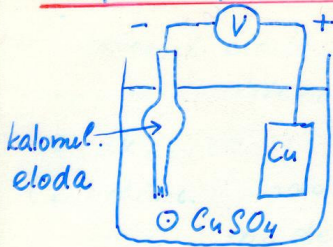 - V +
kalomel.
eloda
Cu
⊙ CuSO4